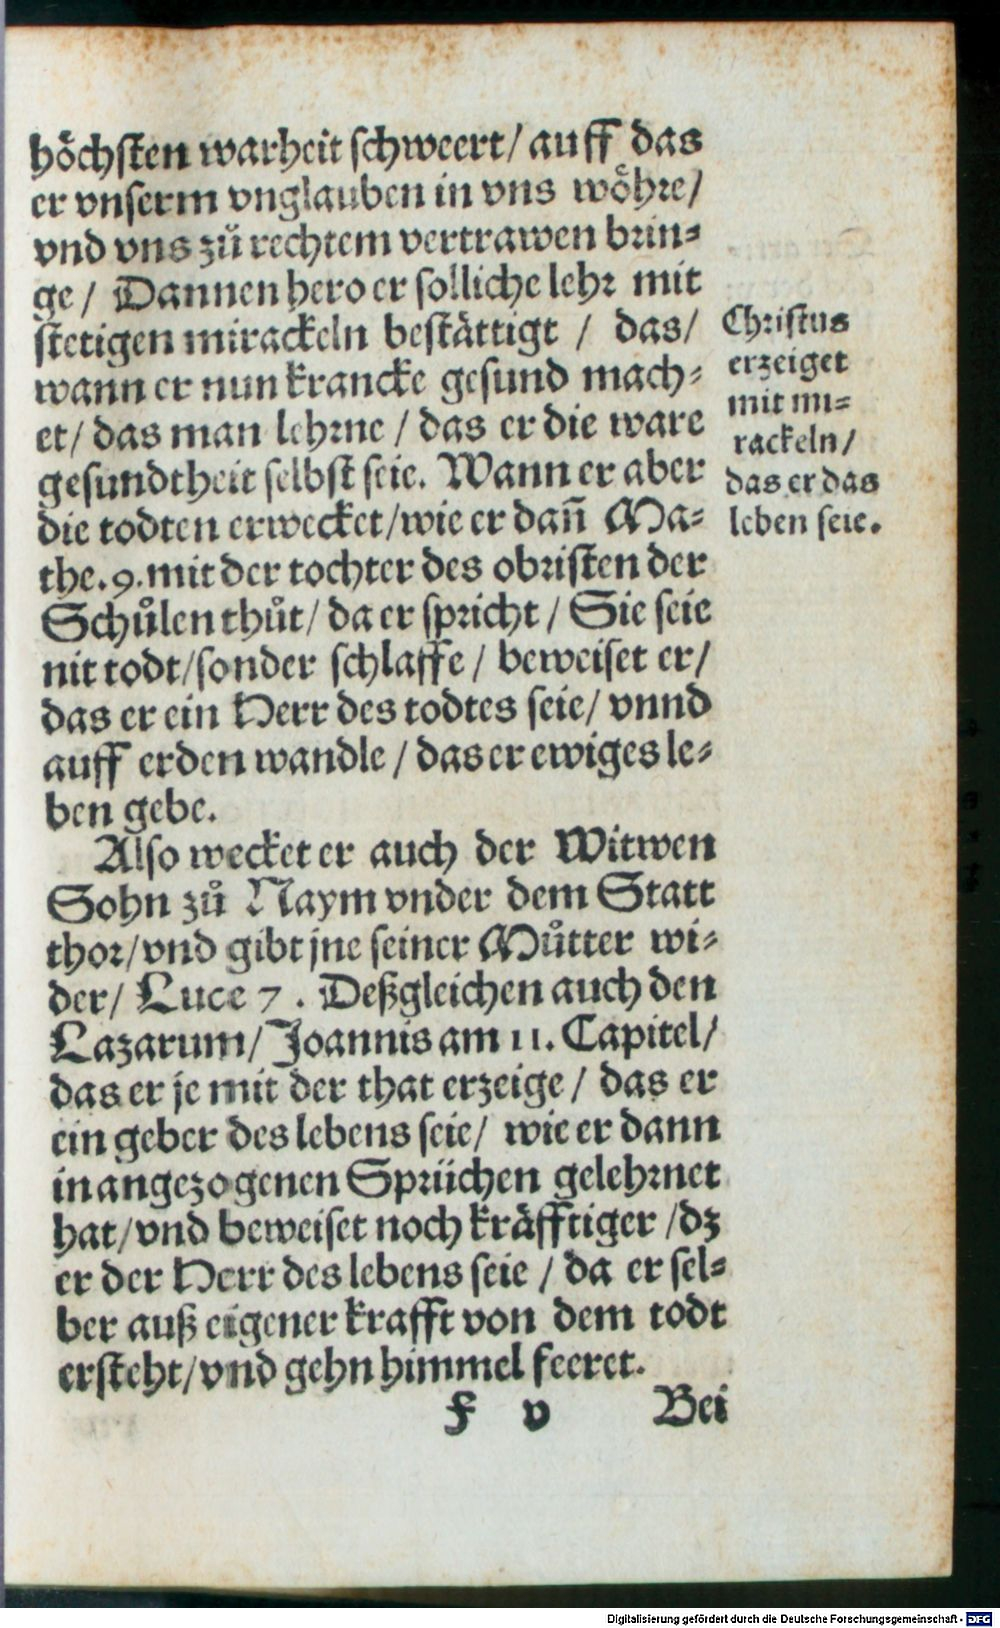 hoͤchsten warheit schweert/ auff das
er vnserm vnglauben in vns woͤhre/
vnd vns zuͦ rechtem vertrawen brin-
ge / Dannen hero er solliche lehr mit
stetigen mirackeln bestaͤttigt / das/
wann er nun krancke gesund mach-
et/ das man lehrne / das er die ware
gesundtheit selbst seie. Wann er aber
die todten erwecket/wie er dañ Ma-
the.9.mit der tochter des obristen der
Schuͦlen thuͦt/ da er spricht / Sie seie
nit todt/sonder schlaffe / beweiset er/
das er ein Herr des todtes seie/ vnnd
auff erden wandle / das er ewiges le-
ben gebe.
Also wecket er auch der Witwen
Sohn zuͦ Naym vnder dem Statt
thor/vnd gibt jne seiner Muͦtter wi-
der/ Luce 7. Deßgleichen auch den
Lazarum/ Joannis am 11. Capitel/
das er je mit der that erzeige / das er
ein geber des lebens seie/ wie er dann
in angezogenen Sprüchen gelehrnet
hat/vnd beweiset noch kraͤfftiger /dz
er der Herr des lebens seie / da er sel-
ber auß eigener krafft von dem todt
ersteht/vnd gehn himmel feeret.
Christus
erzeiget
mit mi-
rackeln/
das er das
leben seie.
f v Bei
Digitalisierung gefördert durch die Deutsche Forschungsgemeinschaft - DFG